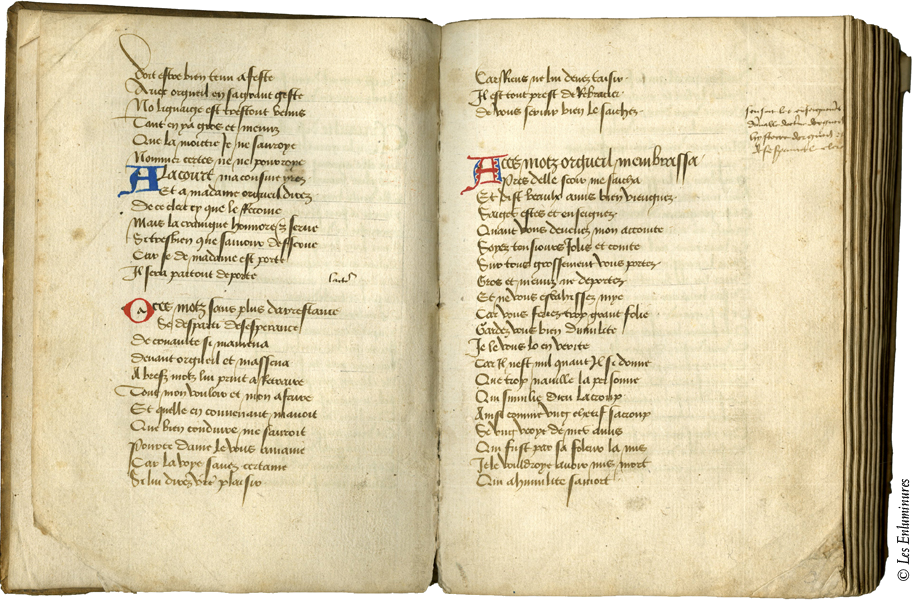 Doit estre bien tenu a feste
Avec orgueil en sa grant geste
No lignaige est trestout venus
Tant en ya gros et menuz
Que la moictie Je ne sauroye
Nommer certes ne ne pourroye
A la court ma cousine yrez
Et a madame orgueil direz
De ce clerc cy que le
Mais la craingne honnore et serve
Si tresbien que samour desserve
Car se de madame est porte
Il sera partout deporte
A ces motz sans plus darrestance
Se desparti desesperance
De convoitise si mamena
devant orgueil et massena
A brefz motz lui print a Retraire
Tout mon vouloir et mon afaire
Et quelle en convenant mavoit
Que bien conduire me sauroit
Pource dame le vous amaine
Car la voye savez certaine
Si lui direz vre plaisir
Car Riens ne lui devez taisir
Il est tout prest de
de vous servir bien le saichez
A ces motz orgueil membrassa
Pres delle seoir me
Et dist beaulx amis bien viengnez
Saiges estes et enseignez
Quant vous devenez mon acointe
Soyez tousiours Jolis et cointe
Sur tous grossement vous portez
Gros et menuz ne deportez
Et ne vous esbahissez mye
Car vous feriez trop grant folie
Gardez vous bien dumilite
Je le vous lo en verite
Car Il nest nul quant Il si donne
Que trop naville la personne
Qui similie Dieu lacroup
Ainsi comme ung chetif sacroup
Se ung voye de met avis
Qui fust par sa foleur la mis
Je le vouldroye avoir mis mort
Qui a humilite samort
© Les Enluminures